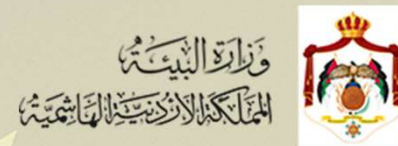 وَزَارَة البِيئَة
المَملَكَة الأُردُنِيَّة الهَاشِمِيَّة